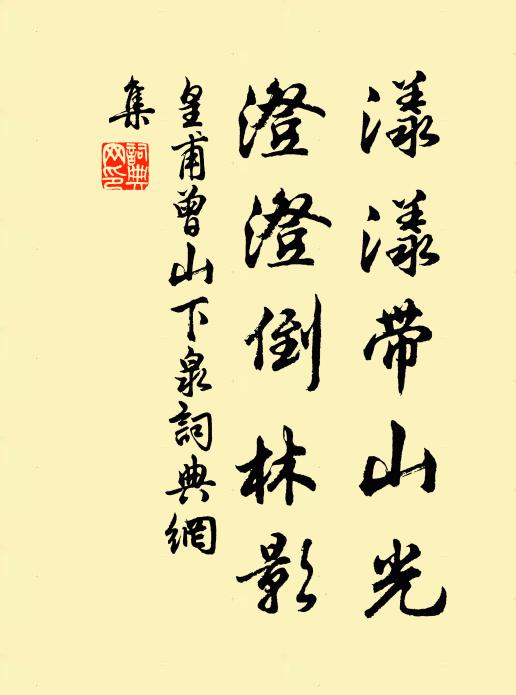 漾漾帶山光
澄澄倒林影
皇甫曾山下泉詞典網
集
詞典網印